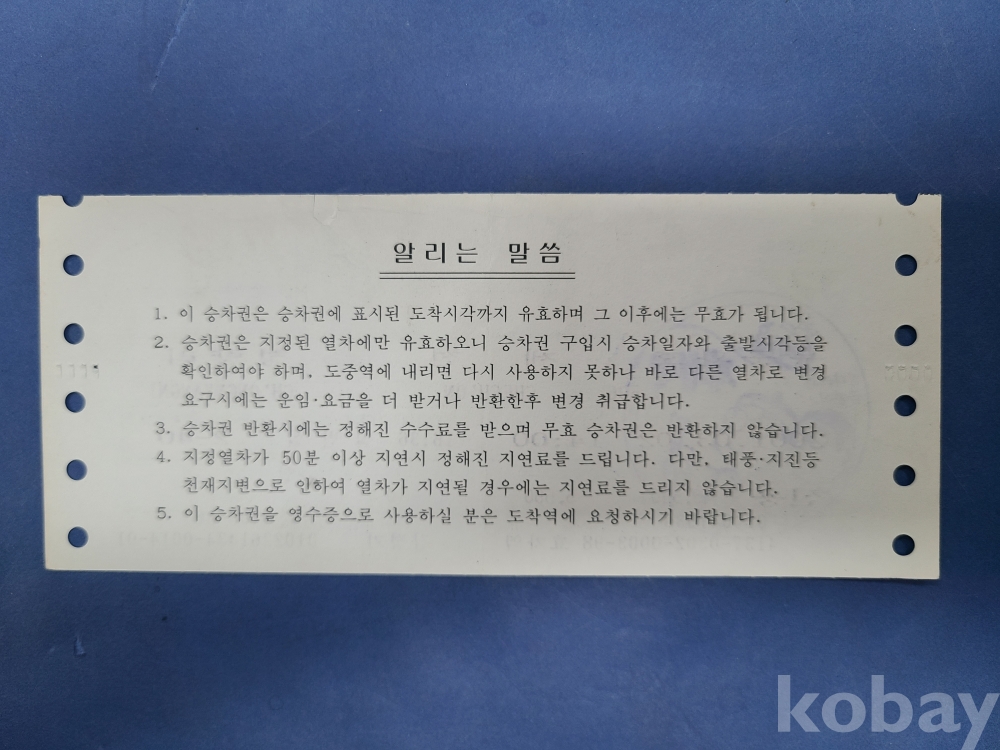 알리는 말씀
1. 이 승차권은 승차권에 표시된 도착시각까지 유효하며 그 이후에는 무효가 됩니다.
2. 승차권은 지정된 열차에만 유효하오니 승차권 구입시 승차일자와 출발시각등을
확인하여야 하며, 도중역에 내리면 다시 사용하지 못하나 바로 다른 열차로 변경
요구시에는 운임·요금을 더 받거나 반환한후 변경 취급합니다.
3. 승차권 반환시에는 정해진 수수료를 받으며 무효 승차권은 반환하지 않습니다.
4. 지정열차가 50분 이상 지연시 정해진 지연료를 드립니다. 다만, 태풍·지진등
천재지변으로 인하여 열차가 지연될 경우에는 지연료를 드리지 않습니다.
5. 이 승차권을 영수증으로 사용하실 분은 도착역에 요청하시기 바랍니다.
kobay